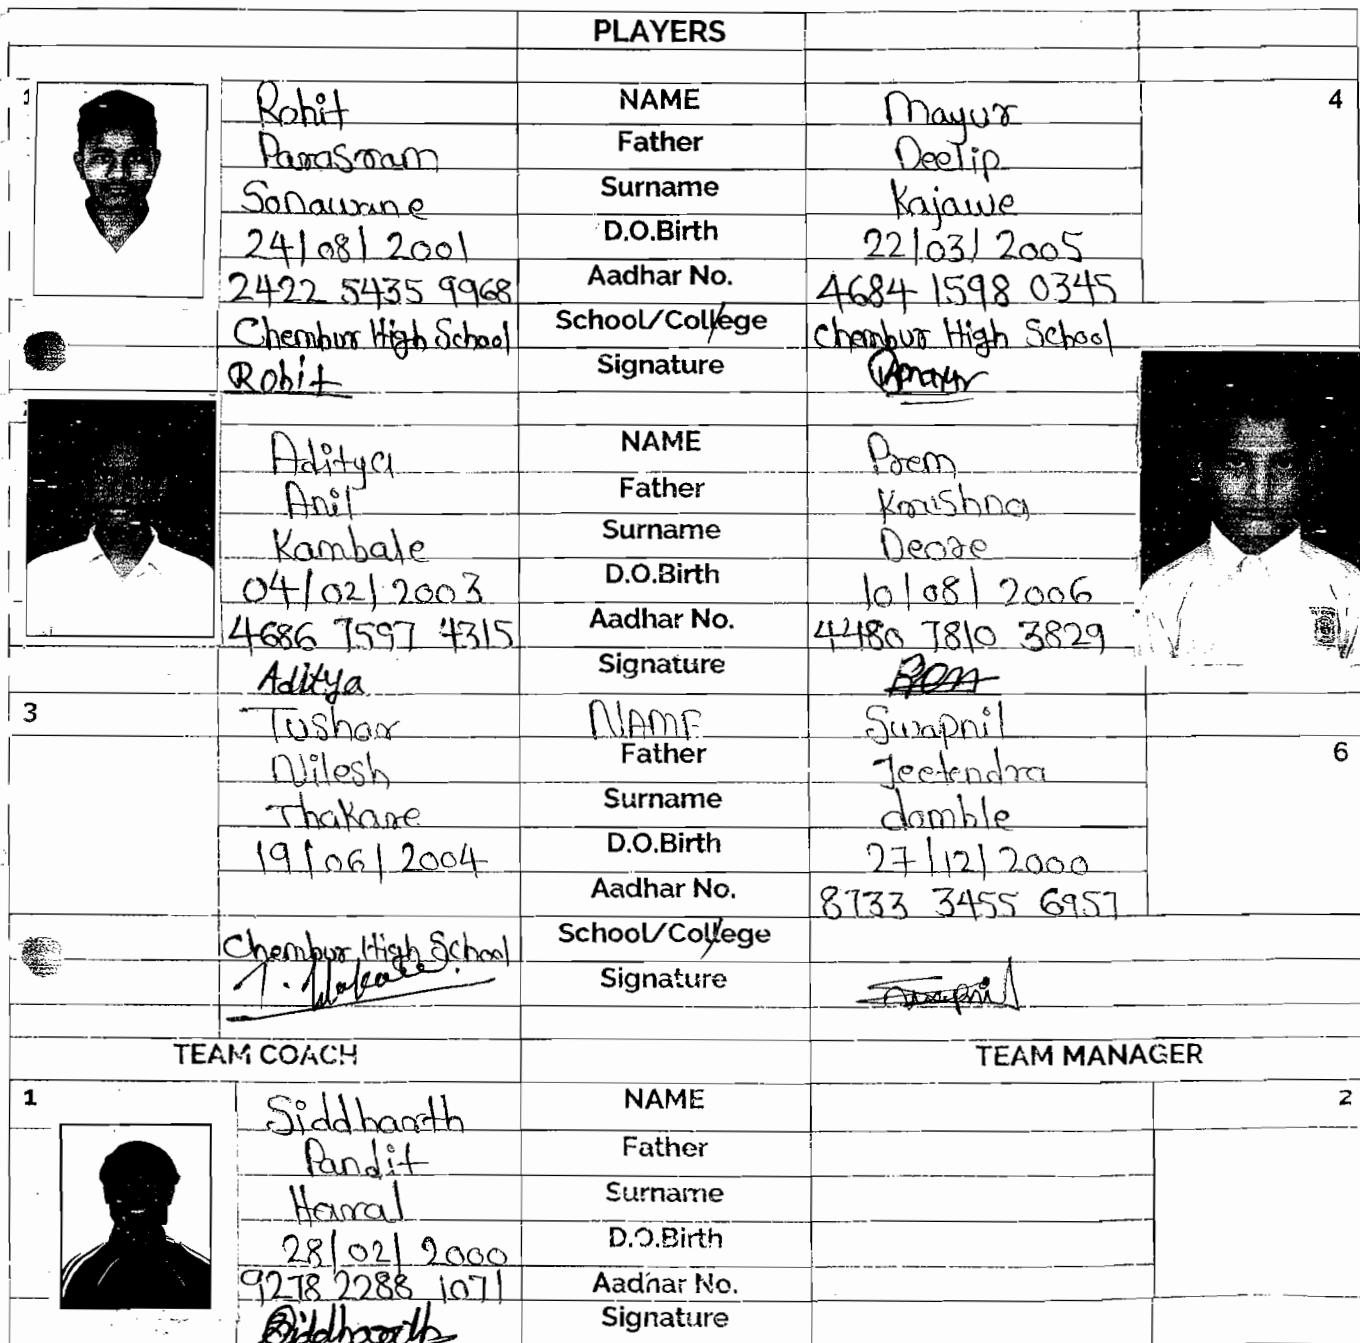 PLAYERS
1 Rohit NAME Mayur 4
Parasram Father Deelip
Sonawane Surname Kajawe
24/08/2001 D.O.Birth 22/03/2005
2422 5435 9968 Aadhar No. 4684 1598 0345
Chembur High School School/College Chembur High School
Rohit Signature
Aditya NAME Prem
Anil Father Krishna
Kambale Surname Deore
04/02/2003 D.O.Birth 10/08/2006
4686 7597 4315 Aadhar No. 4480 7810 3829
Aditya Signature Prem
3 Tushar NAME Swapnil
Nilesh Father Jeetendra 6
Thakare Surname damble
19/06/2004 D.O.Birth 27/12/2000
Aadhar No. 8733 3455 6957
Chembur High School School/College
T. Thakare Signature Swapnil
TEAM COACH TEAM MANAGER
1 Siddharth NAME 2
Pandit Father
Harral Surname
28/02/2000 D.O.Birth
9278 2288 1071 Aadhar No.
Siddharth Signature